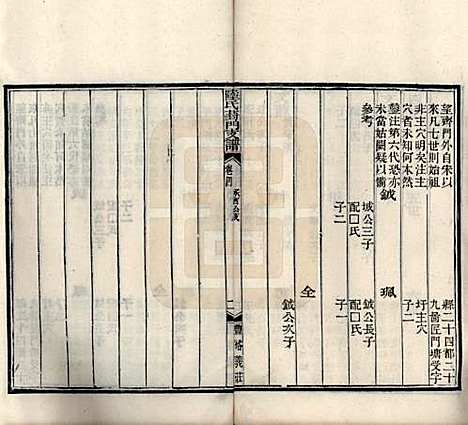 塋齊門外自朱以
來凡七世則始祖
非主穴明矣注主
穴者未知何本然
鑿注第六代恐亦
未當姑闕疑以備
參考
鉞
域公三子
配囗氏
子二
縣二十四都二十
九啚匠門塘受字
圩主穴
子二
珮
鉞公長子
配囗氏
子一
仝
鉞公次子
陸氏葑門支譜
卷四
二
豐裕義莊